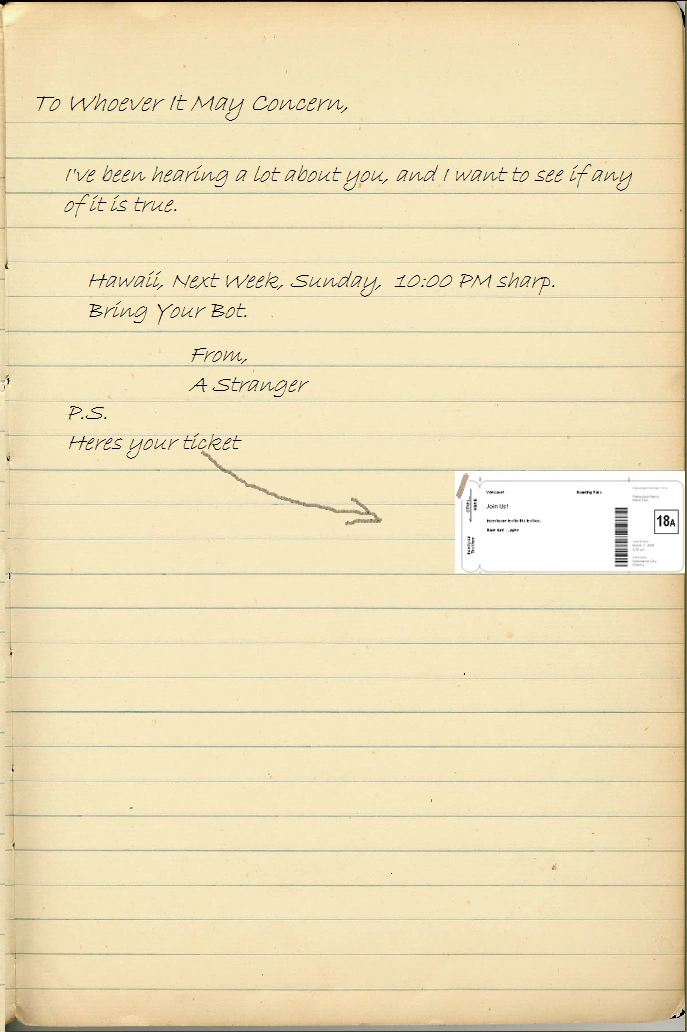 To Whoever It May Concern,
I've been hearing a lot about you, and I want to see if any
of it is true.
Hawaii, Next Week, Sunday, 10:00 PM sharp.
Bring Your Bot.
From,
A Stranger
P.S.
Heres your ticket
Join Us!
18A